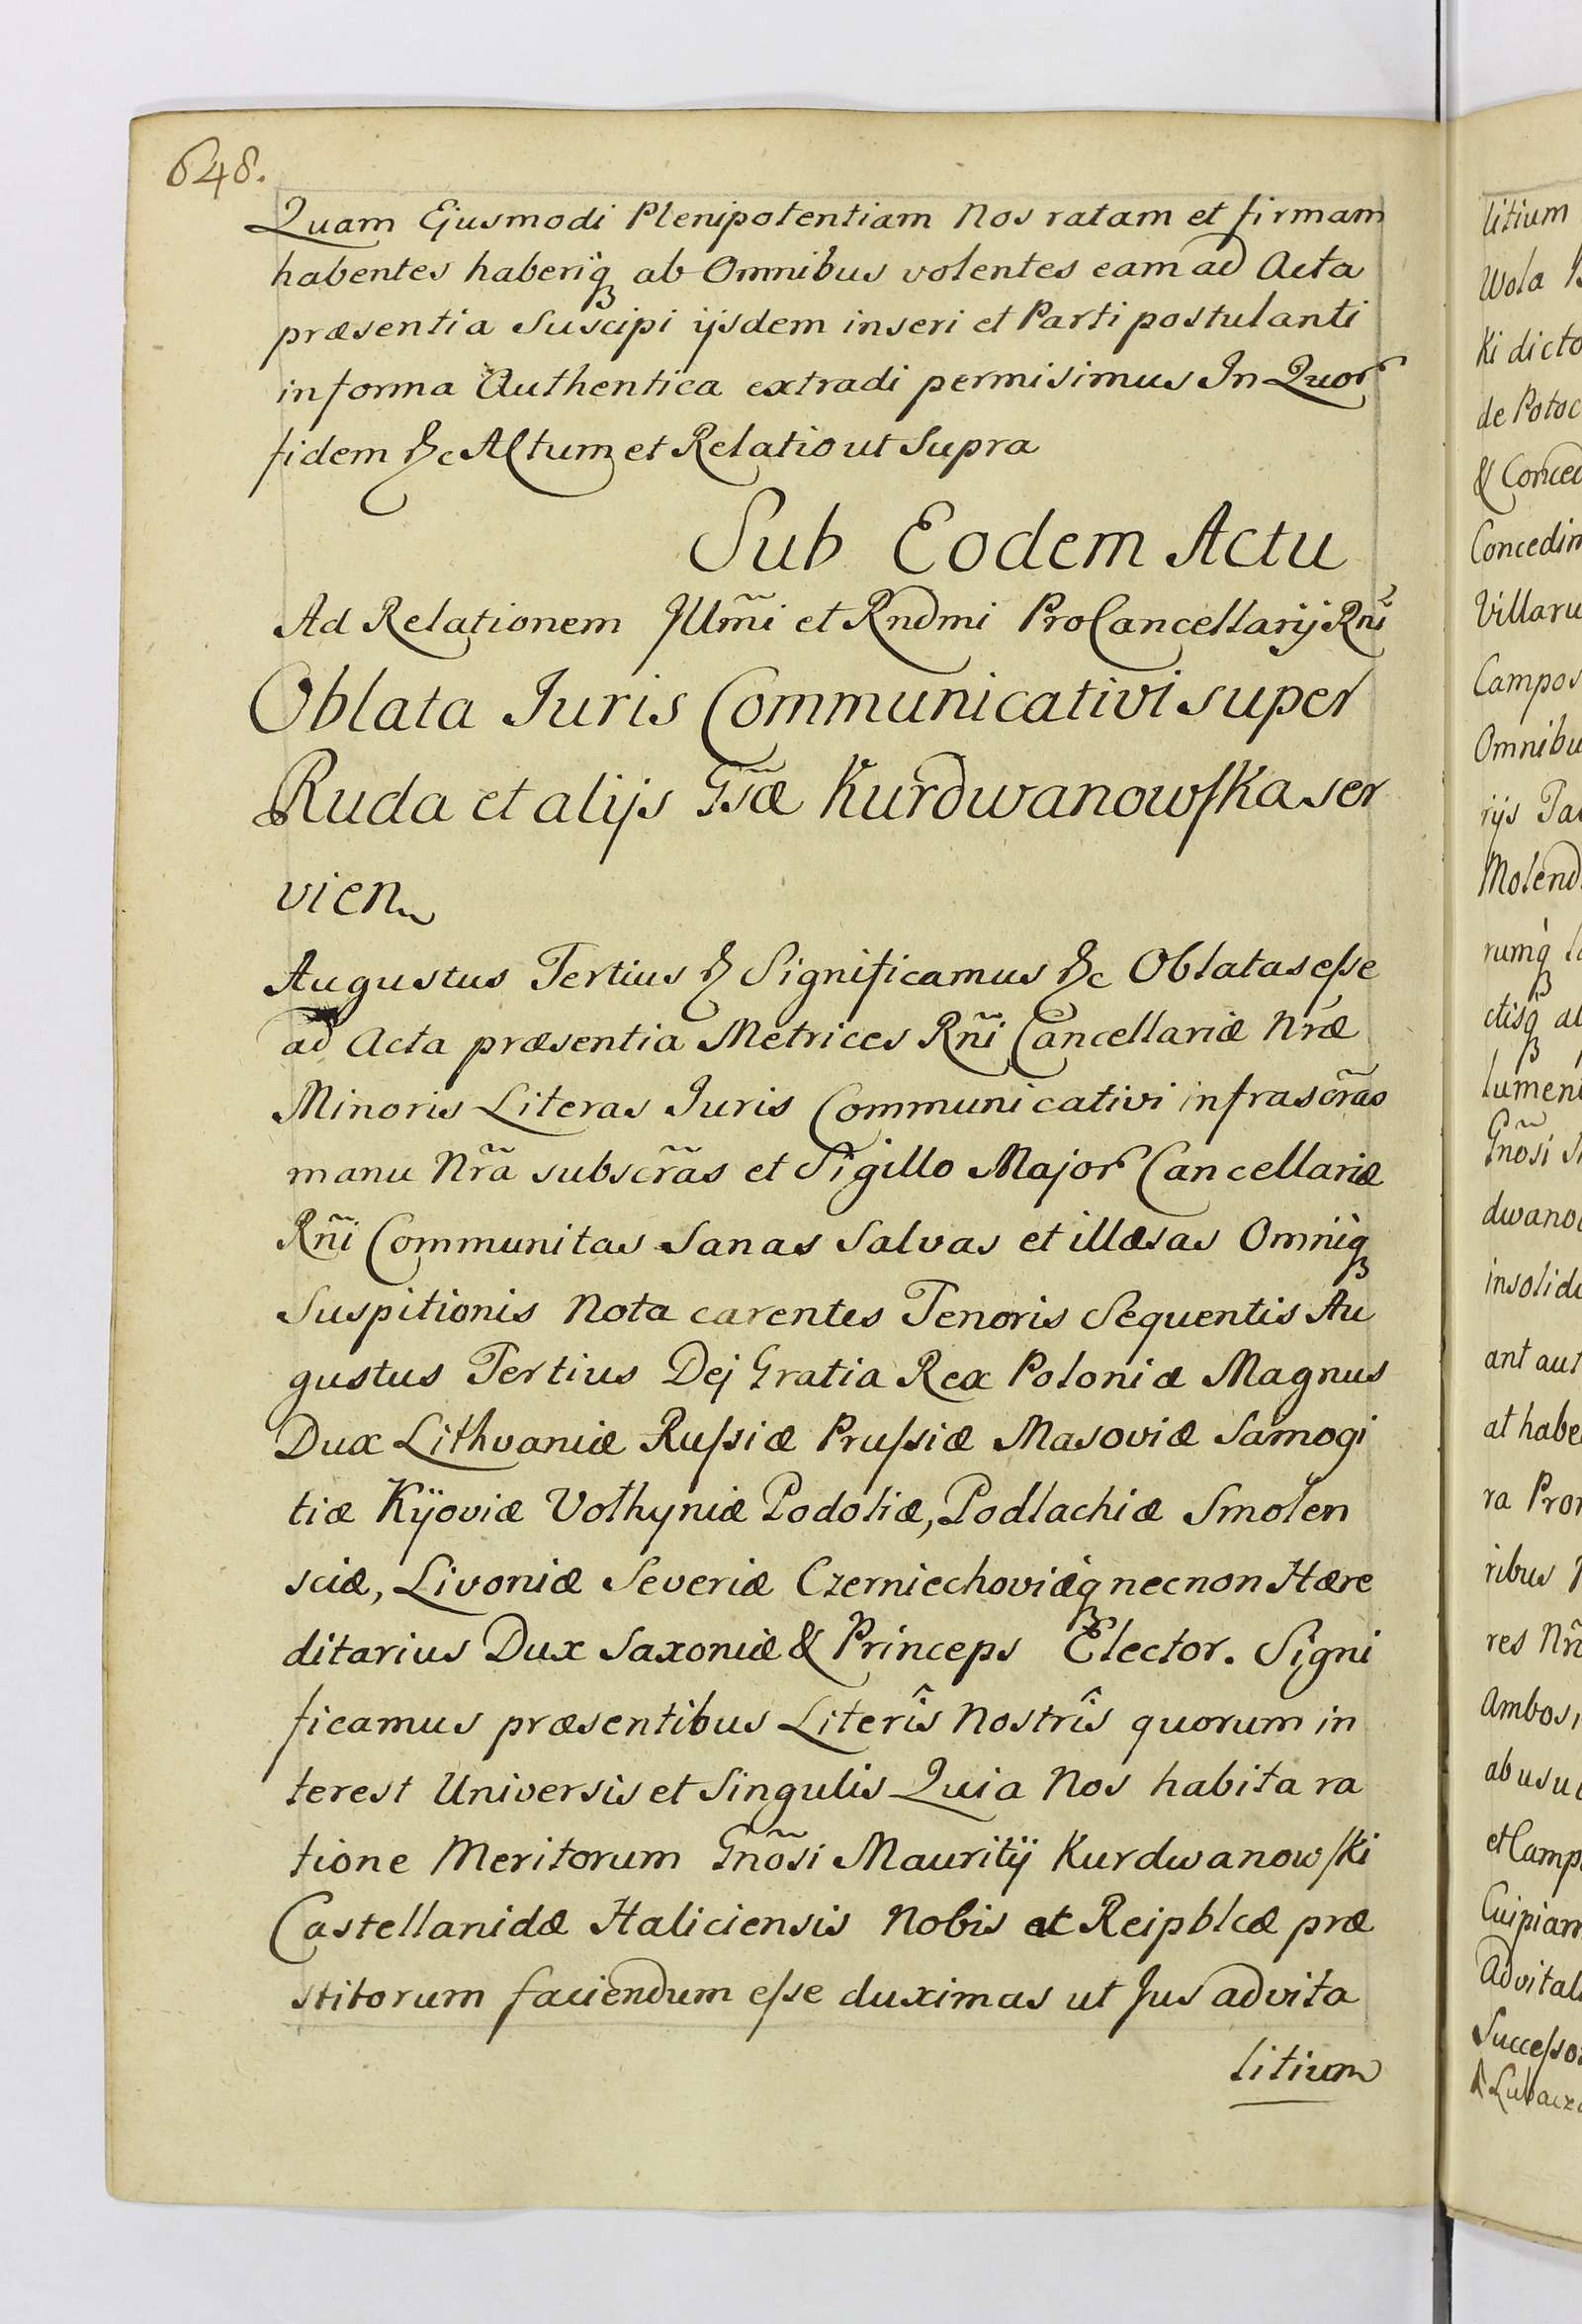 648.
Quam Ejusmodi Plenipotentiam Nos ratam et firmam
habentes haberiq3 ab Omnibus volentes eam ad Acta
præsentia Suscipi ijsdem inseri et Parti postulanti
in forma Authentica extradi permisimus In Quor
fidem &c Actum et Relatio ut Supra
Sub Eodem Actu
Ad Relationem Jllm̃i et Rndmi ProCancellarij Rñi
Oblata Juris Communicativi super
Ruda et alijs Gsæ̃ Kurdwanowska ser
vien
Augustus Tertius & Significamus &c Oblatas esse
ad Acta præsentia Metrices Rñi Cancellariæ Nræ
Minoris Literas Juris Communicativi infrascr̃as
manu Nr̃a subscr̃as et Sigillo Major Cancellariæ
Rñi Communitas Sanas Salvas et illæsas Omniq3
Suspitionis Nota carentes Tenoris Sequentis Au
gustus Tertius Dej Gratia Rex Poloniæ Magnus
Dux Lithvaniæ Russiæ Prussiæ Masoviæ Samogi
tiæ Kÿoviæ Volhyniæ Podoliæ, Podlachiæ Smolen
sciæ, Livoniæ Severiæ Czerniechoviæq3 necnon Hære
ditarius Dux Saxoniæ & Princeps Elector. Signi
ficamus præsentibus Literîs Nostrîs quorum in
terest Universis et Singulis Quia Nos habita ra
tione Meritorum Gnõsi Mauritij Kurdwanowski
Castellanidæ Haliciensis Nobis et Reipblcæ præ
stitorum faciendum esse duximas ut Jus advita
litium
litium
Wola
Ki dicto
de Potoc
& Conced
Concedim
Villaru
Campos
Omnibu
rijs Ta
Molend
rumq3
ctisq3 al
lumeni
Gnõsi
dwano
insolid
ant aut
at habe
ra Pro
ribus
res Nr̃
Ambos,
ab usu
et Camp
Cuipiam
Advital
Successo